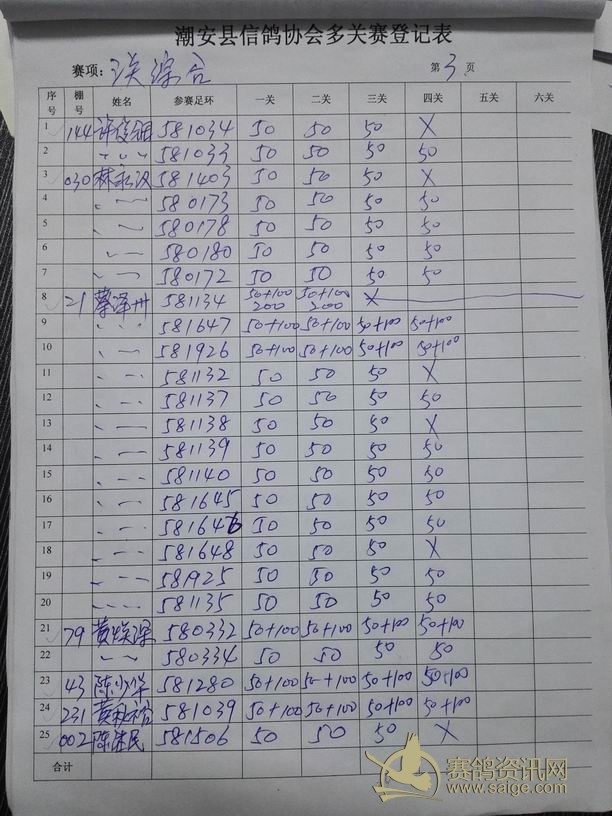 潮安县信鸽协会多关赛登记表
赛项: 综合 第3页
序号 棚号 姓名 参赛足环 一关 二关 三关 四关 五关 六关
1 144 许 581034 50 50 50 X
2 〃 〃 581033 50 50 50 50
3 030 林 581403 50 50 50 X
4 580173 50 50 50 50
5 580178 50 50 50 50
6 580180 50 50 50 50
7 580172 50 50 50 50
8 21 蔡泽州 581134 50+100 200 50+100 200 X
9 581647 50+100 50+100 50+100 50+100
10 581926 50+100 50+100 50+100 50+100
11 581132 50 50 50 X
12 581137 50 50 50 50
13 581138 50 50 50 X
14 581139 50 50 50 50
15 581140 50 50 50 50
16 581645 50 50 50 50
17 581646 50 50 50 50
18 581648 50 50 50 X
19 581925 50 50 50 50
20 581135 50 50 50 50
21 79 黄 580332 50+100 50+100 50+100 50+100
22 580334 50 50 50 50
23 43 陈少华 581280 50+100 50+100 50+100 50+100
24 231 黄 581039 50+100 50+100 50+100 50+100
25 002 陈 民 581506 50 50 50 X
合计
赛鸽资讯网
www.saige.com